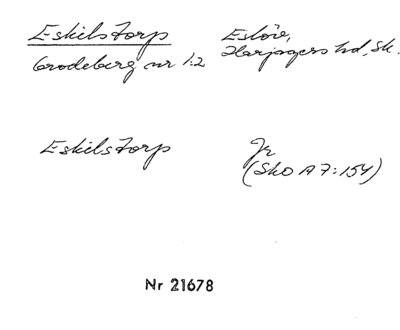 Eskilstorp
Eslöv,
Grodeberg nr 1:2
Harjagers hd, Sk.
Eskilstorp
Jr
(SkO A 7:154)
Nr 21678